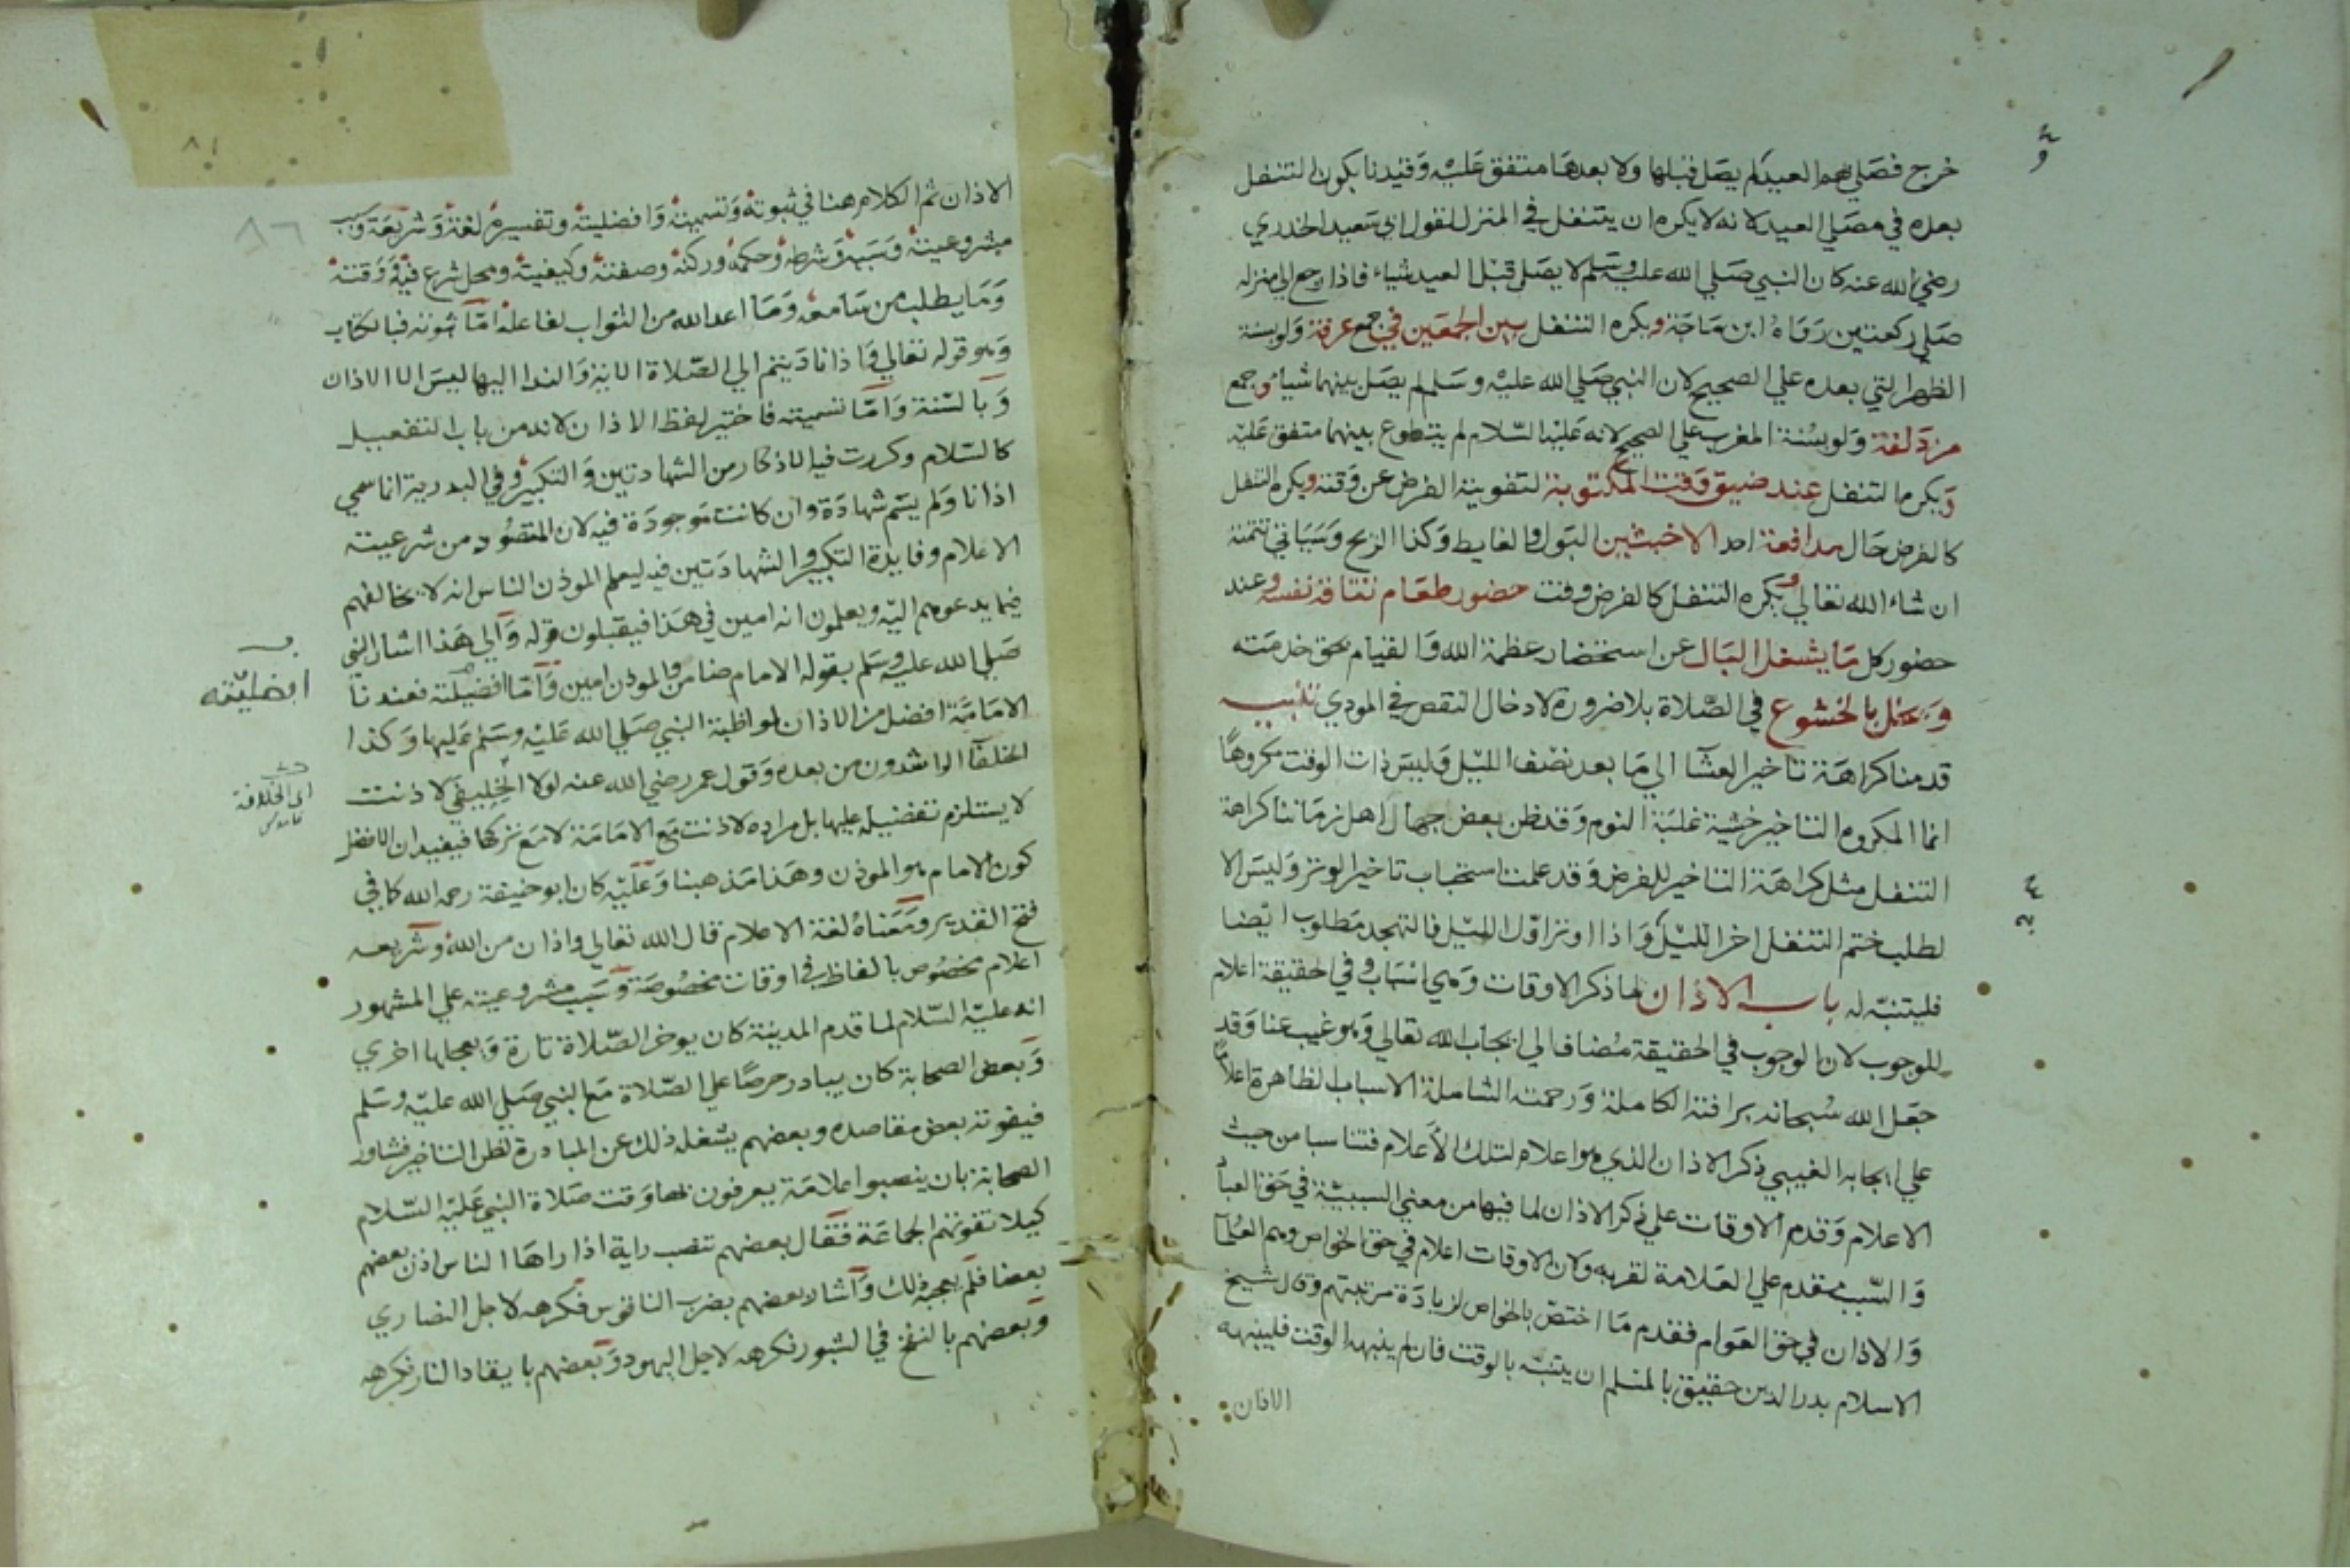 خرج فصلي بهم العيد لم يصل قبلها ولا بعدها متفق عليه وقيدنا بكون التنفل
بعده في مصلي العيد لانه لا يكره ان يتنفل في المنزل لقول ابي سعيد الخدري
رضي الله عنه كان النبي صلي الله عليه وسلم لا يصلي قبل العيد شياء فاذا رجع الي منزله
صلي ركعتين رواه ابن ماجة ويكره التنفل بين الجمعين في جمع عرفة ولو بسنة
الظهر التي بعده علي الصحيح لان النبي صلي الله عليه وسلم لم يصل بينهما شيا وجمع
مزدلفة ولو بسنة المغرب علي الصحيح لانه عليه السلام لم يتطوع بينهما متفق عليه
ويكره التنفل عند ضيق وقت المكتوبة لتفويته الفرض عن وقته ويكره التنفل
كالفرض حال مدافعة احد الاخبثين البول والغايط وكذا الريح وسياتي تتمته
ان شاء الله تعالي ويكره التنفل كالفرض وقت حضور طعام تتاقه نفسه وعند
حضور كل ما يشغل البال عن استحضار عظمة الله والقيام بحق خدمته
ويخل بالخشوع في الصلاة بلا ضرورة لادخال النقص في المودي تنبيه
قدمنا كراهة تاخير العشآ الي ما بعد نصف الليل وليس ذات الوقت مكروهًا
انما المكروه التاخير خشية غلبة النوم وقد ظن بعض جهال اهل زماننا كراهة
التنفل مثل كراهة التاخير للفرض وقد علمت استحباب تاخير الوتر وليس الا
لطلب ختم التنفل اخر الليل واذا اوتر اول الليل فالتهجد مطلوب ايضا
فليتنبه له باب الاذان لما ذكر الاوقات وهي اسباب وفي الحقيقة اعلام
للوجوب لان الوجوب في الحقيقة مضاف الي ايجاب الله تعالي وهو غيب عنا وقد
جعل الله سبحانه برافته الكاملة ورحمته الشاملة الاسباب الظاهرة اعلامًا
علي ايجابه الغيبي ذكر الاذان الذي هو اعلام لتلك الأعلام فتناسبا من حيث
الاعلام وقدم الاوقات علي ذكر الاذان لما فيها من معني السببية في حق العباد
والسبب مقدم علي العلامة لقربه ولان الاوقات اعلام في حق الخواص وهم العلمآ
والاذان في حق العوام فقدم ما اختص بالخواص لزيادة مرتبتهم وقال شيخ
الاسلام بدر الدين حقيق بالمسلم ان يتنبه بالوقت فان لم ينبهه الوقت فلينبهه
الاذان
٨٦
الاذان ثم الكلام هنا في ثبوته وتسميته وافضليته وتفسيره لغة وشريعة وسبب
مشروعيته وسببه وشرطه وحكمه وركنه وصفته وكيفيته ومحل شرع فيه ووقته
وما يطلب من سامعه وما اعد الله من الثواب لفاعله اما ثبوته فبالكتاب
وهو قوله تعالي واذا ناديتم الي الصلاة الاية والندا اليها ليس الا الاذان
وبالسنة واما تسميته فاختير لفظ الاذان لانه من باب التفعيل
كالسلام وكررت فيه الاذكار من الشهادتين والتكبير وفي البدرية انما سمي
اذانا ولم يسم شهادة وان كانت موجودة فيه لان المقصود من شرعيته
الاعلام وفايدة التكبير والشهادتين فيه ليعلم الموذن الناس انه لا يخالفهم
فيما يدعوهم اليه ويعلمون انه امين في هذا فيقبلون قوله والي هذا اشار النبي
صلي الله عليه وسلم بقوله الامام ضامن والموذن امين واما افضليته فعندنا
الامامة افضل من الاذان لمواظبة النبي صلي الله عليه وسلم عليها وكذا
الخلفآ الراشدون من بعده وقول عمر رضي الله عنه لولا الخليفي لاذنت
لا يستلزم تفضيله عليها بل مراده لاذنت مع الامامة لا مع تركها فيفيد ان الافضل
كون الامام هو الموذن وهذا مذهبنا وعليه كان ابو حنيفة رحمه الله كما في
فتح القدير ومعناه لغة الاعلام قال الله تعالي واذان من الله وشريعه
اعلام مخصوص بالفاظ في اوقات مخصوصة وسبب مشروعيته علي المشهور
انه عليه السلام لما قدم المدينة كان يوخر الصلاة تارة ويعجلها اخري
وبعض الصحابة كان يبادر حرصًا علي الصلاة مع النبي صلي الله عليه وسلم
فيفوته بعض مقاصده وبعضهم يشغله ذلك عن المبادرة لظن التاخير فشاور
الصحابة بان ينصبوا علامة يعرفون بها وقت صلاة النبي عليه السلام
كيلا تفوتهم الجماعة فقال بعضهم تنصب راية اذا راها الناس اذن بعضهم
بعضا فلم يعجبه ذلك واشار بعضهم بضرب الناقوس فكرهه لاجل النصاري
وبعضهم بالنفخ في الشبور فكرهه لاجل اليهود وبعضهم بايقاد النار فكرهه
افضليته
اي الخلافة
قاموس